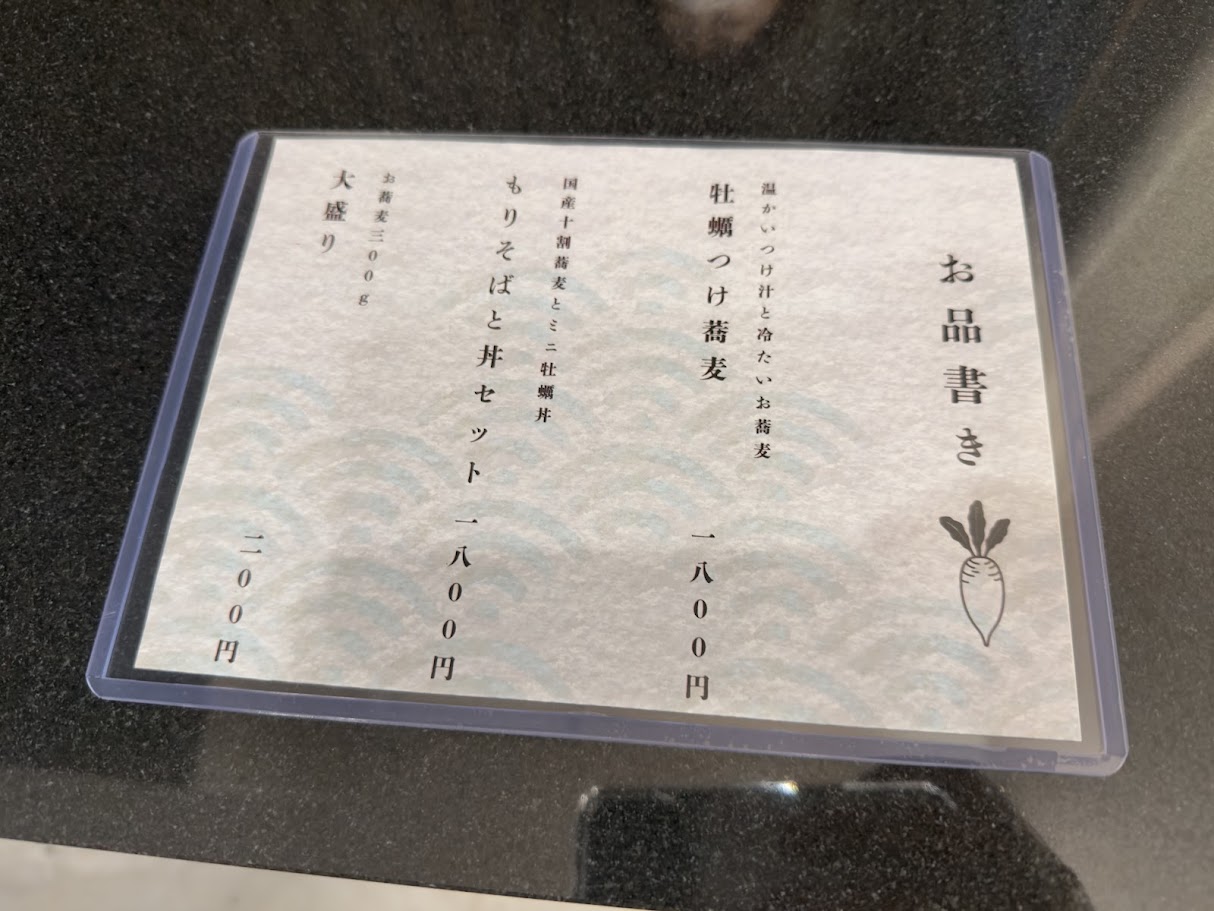 お品書き
温かいつけ汁と冷たいお蕎麦
牡蠣つけ蕎麦 一八００円
国産十割蕎麦とミニ牡蠣丼
もりそばと丼セット 一八００円
お蕎麦三００g
大盛り 二００円